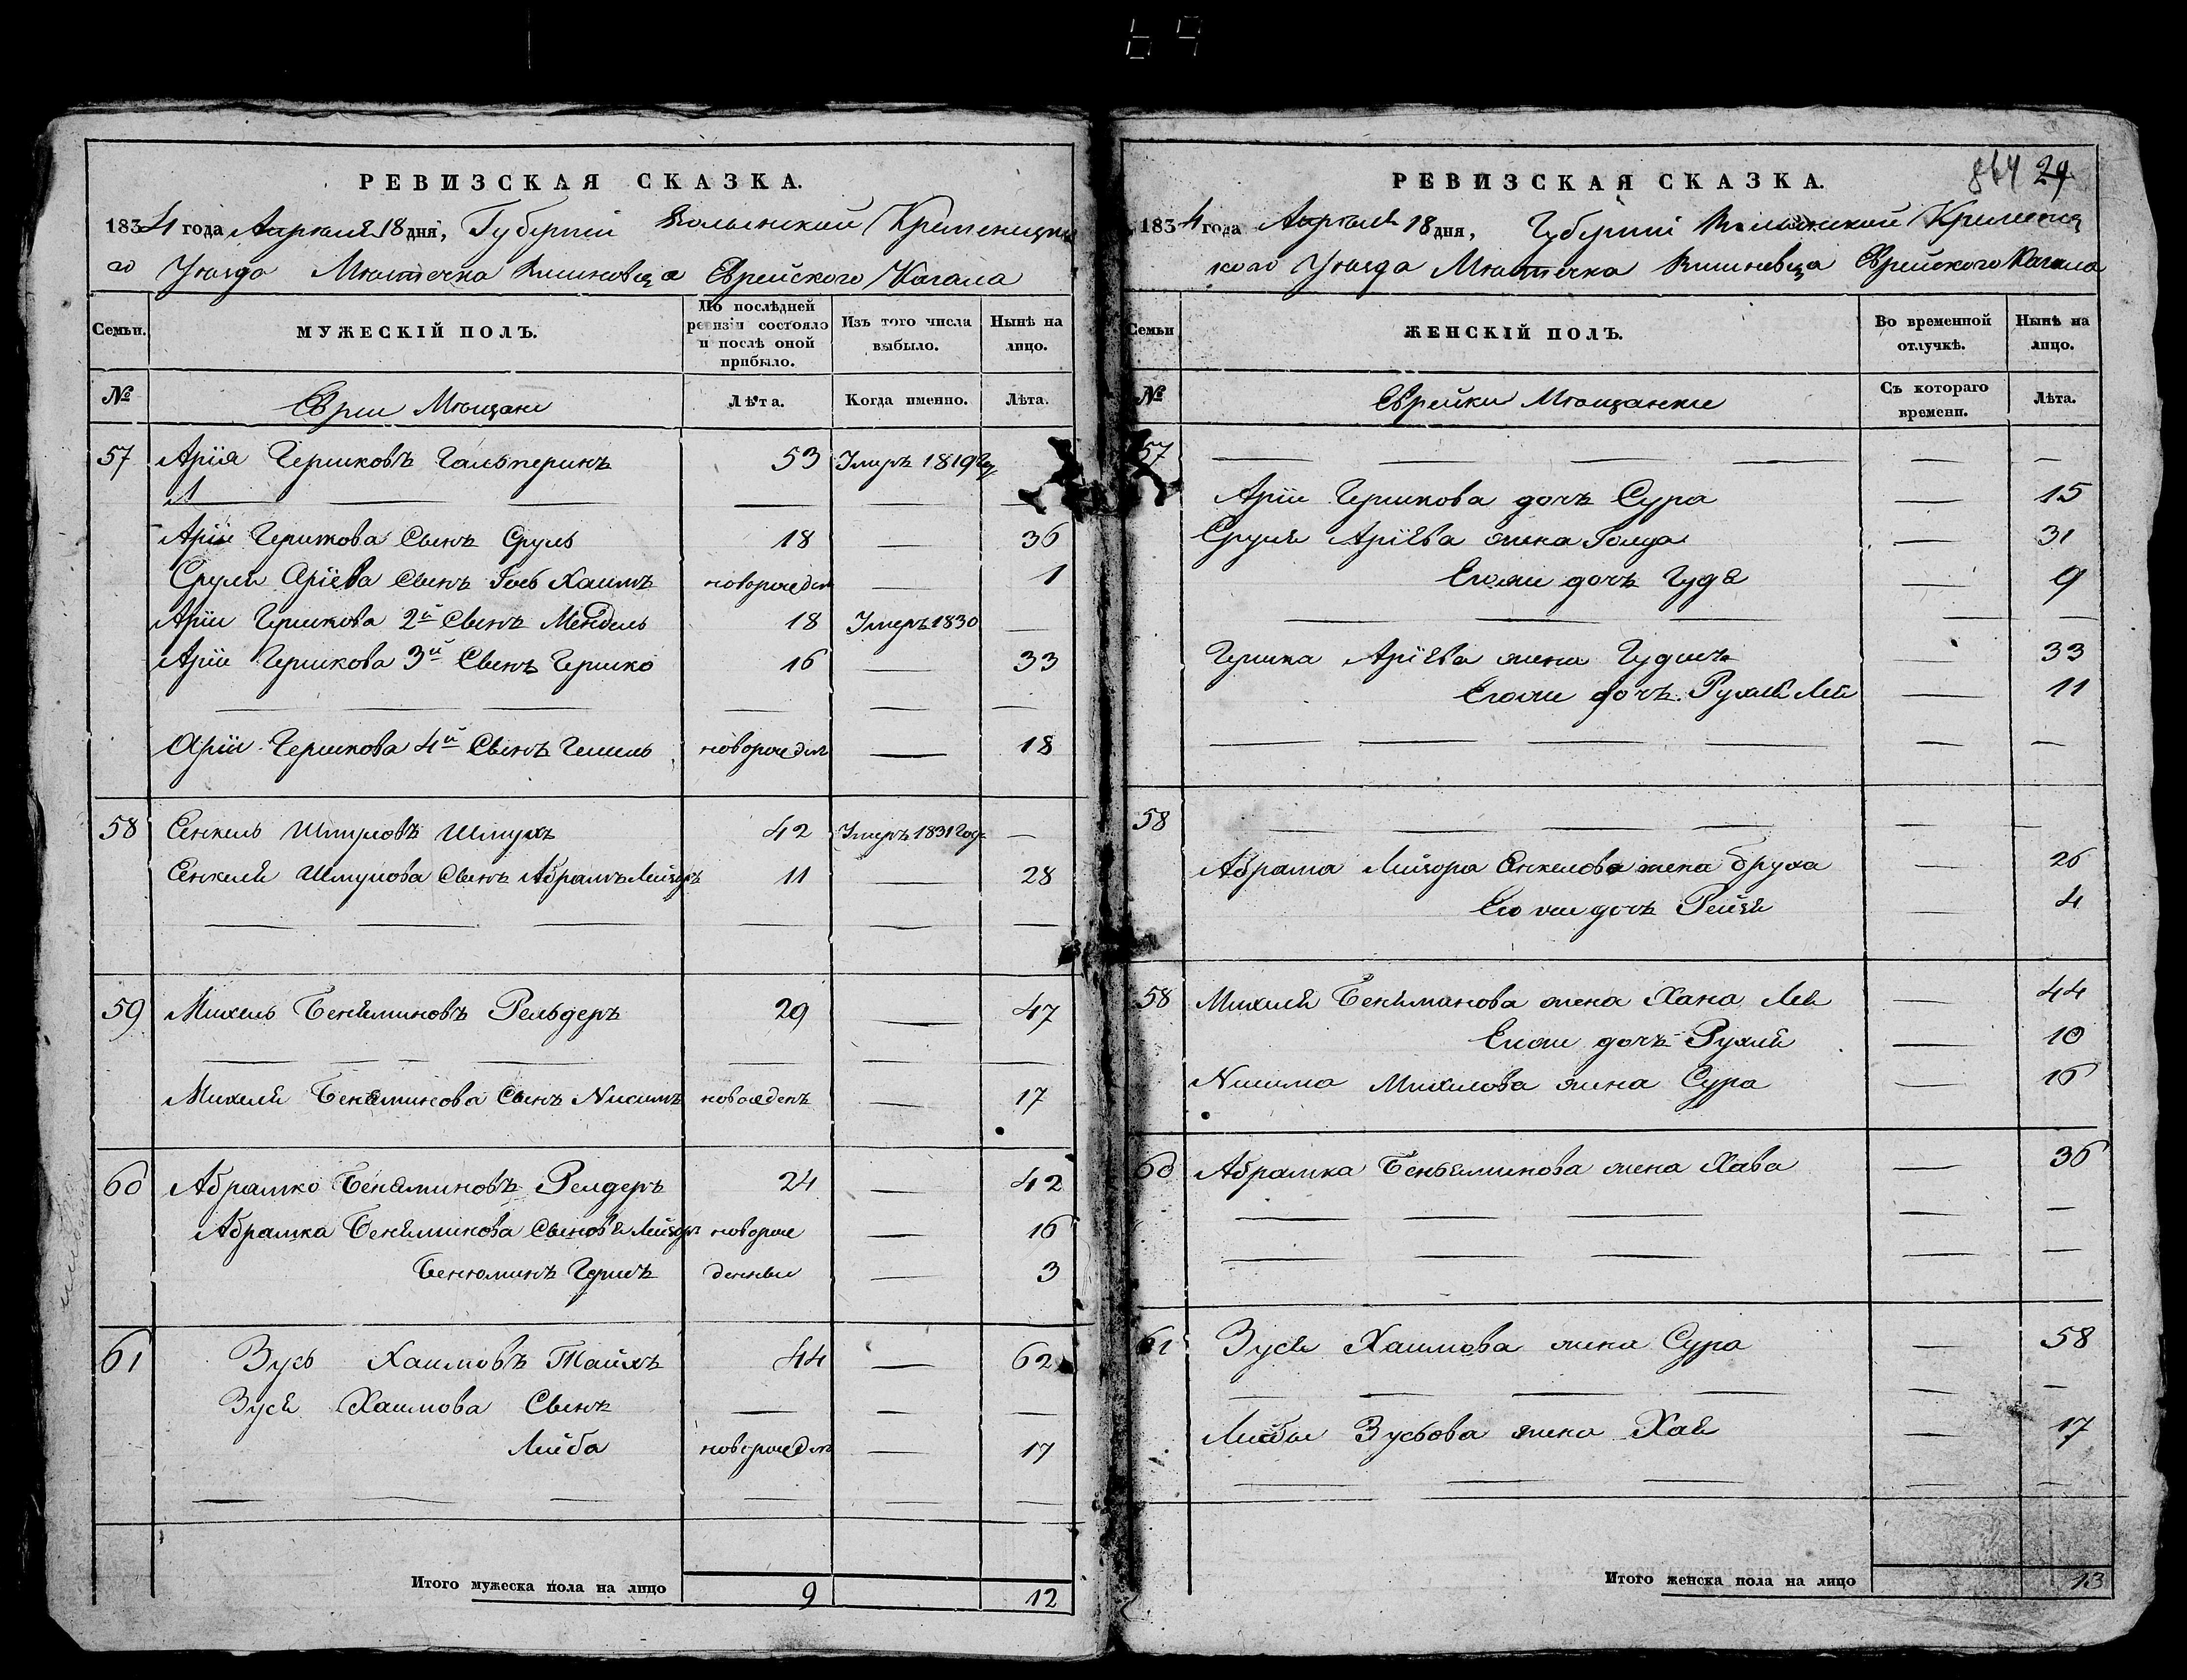 РЕВИЗСКАЯ СКАЗКА.
1834 года Апреля 18 дня, Губернии Волынской Кременецка
го Уезда Местечка Вишневца Еврейского Кагала
Семьи. МУЖЕСКІЙ ПОЛЪ. По послѣдней ревизіи состояло и послѣ оной прибыло. Изъ того числа выбыло. Нынѣ на лицо.
№ Евреи Мещане Лѣта. Когда именно. Лѣта.
57 Арія Гершковъ Гальперинъ 53 Умеръ 1819 Год
Аріи Гершкова Сынъ Сруль 18 — 36
Сруля Аріева Сынъ Іось Хаимъ новорожден — 1
Аріи Гершкова 2й Сынъ Мендель 18 Умеръ 1830 —
Аріи Гершкова 3й Сынъ Гершко 16 — 33
Аріи Гершкова 4й Сынъ новорожден — 18
58 Сенкель Шмуловъ Шмукъ 42 Умеръ 1831 Год —
Сенкеля Шмулова Сынъ Абрамъ Лейзеръ 11 — 28
59 Михель Беняминовъ Рельдеръ 29 — 47
Михеля Беняминова Сынъ Нисимъ новожденъ — 17
60 Абрамко Беняминовъ Релдеръ 24 — 42
Абрамка Беняминова Сыновя Лейзеръ новорож — 16
Бенюминъ Гершъ денные — 3
61 Зусь Хаимовъ Тайхъ 44 — 62
Зуся Хаимова Сынъ — — —
Лейба новорожден — 17
Итого мужеска пола на лицо 9 12
864 29
РЕВИЗСКАЯ СКАЗКА.
1834 года Апреля 18 дня, Губернии Волынской Кременец
кого Уезда Местечка Вишневца Еврейского Кагала
Семьи ЖЕНСКІЙ ПОЛЪ. Во временной отлучкѣ. Нынѣ на лицо.
№ Еврейки Мещанки Съ котораго времени. Лѣта.
57 — — — — — —
Аріи Гершкова дочъ Сура — 15
Сруля Аріева жена Голда — 31
Егожи дочъ Гудя — 9
Гершка Аріева жена — 33
Егожи дочъ Рухля Лея — 11
58 — — — — — —
Абрама Лейзора Енкелова жена Бруха — 26
Егожи дочъ Рейзя — 4
58 Михеля Бениминова жена Хана Лея — 44
Егожи дочъ Рухля — 10
Нисима Михелова жена Сура — 16
60 Абрамка Беньяминова жена Хава — 36
61 Зуся Хаимова жена Сура — 58
Лейбы Зусьова жена Хая — 17
Итого женска пола на лицо 13